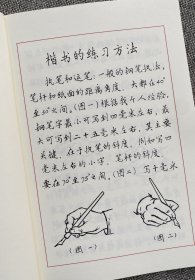 楷书的练习方法
执笔和运笔:一般的钢笔执法,
笔杆和纸面的距离角度,大都在40°
至50°之间。(图一)根据我个人经验,
钢笔字最小可写到四毫米左右,最
大可写到二十五毫米左右,其主要
关键,在于执笔的斜度,例如写四
毫米左右的小字,笔杆的斜度,
要在70°至75°之间,(图二)写十毫米
(图 一)
(图 二)